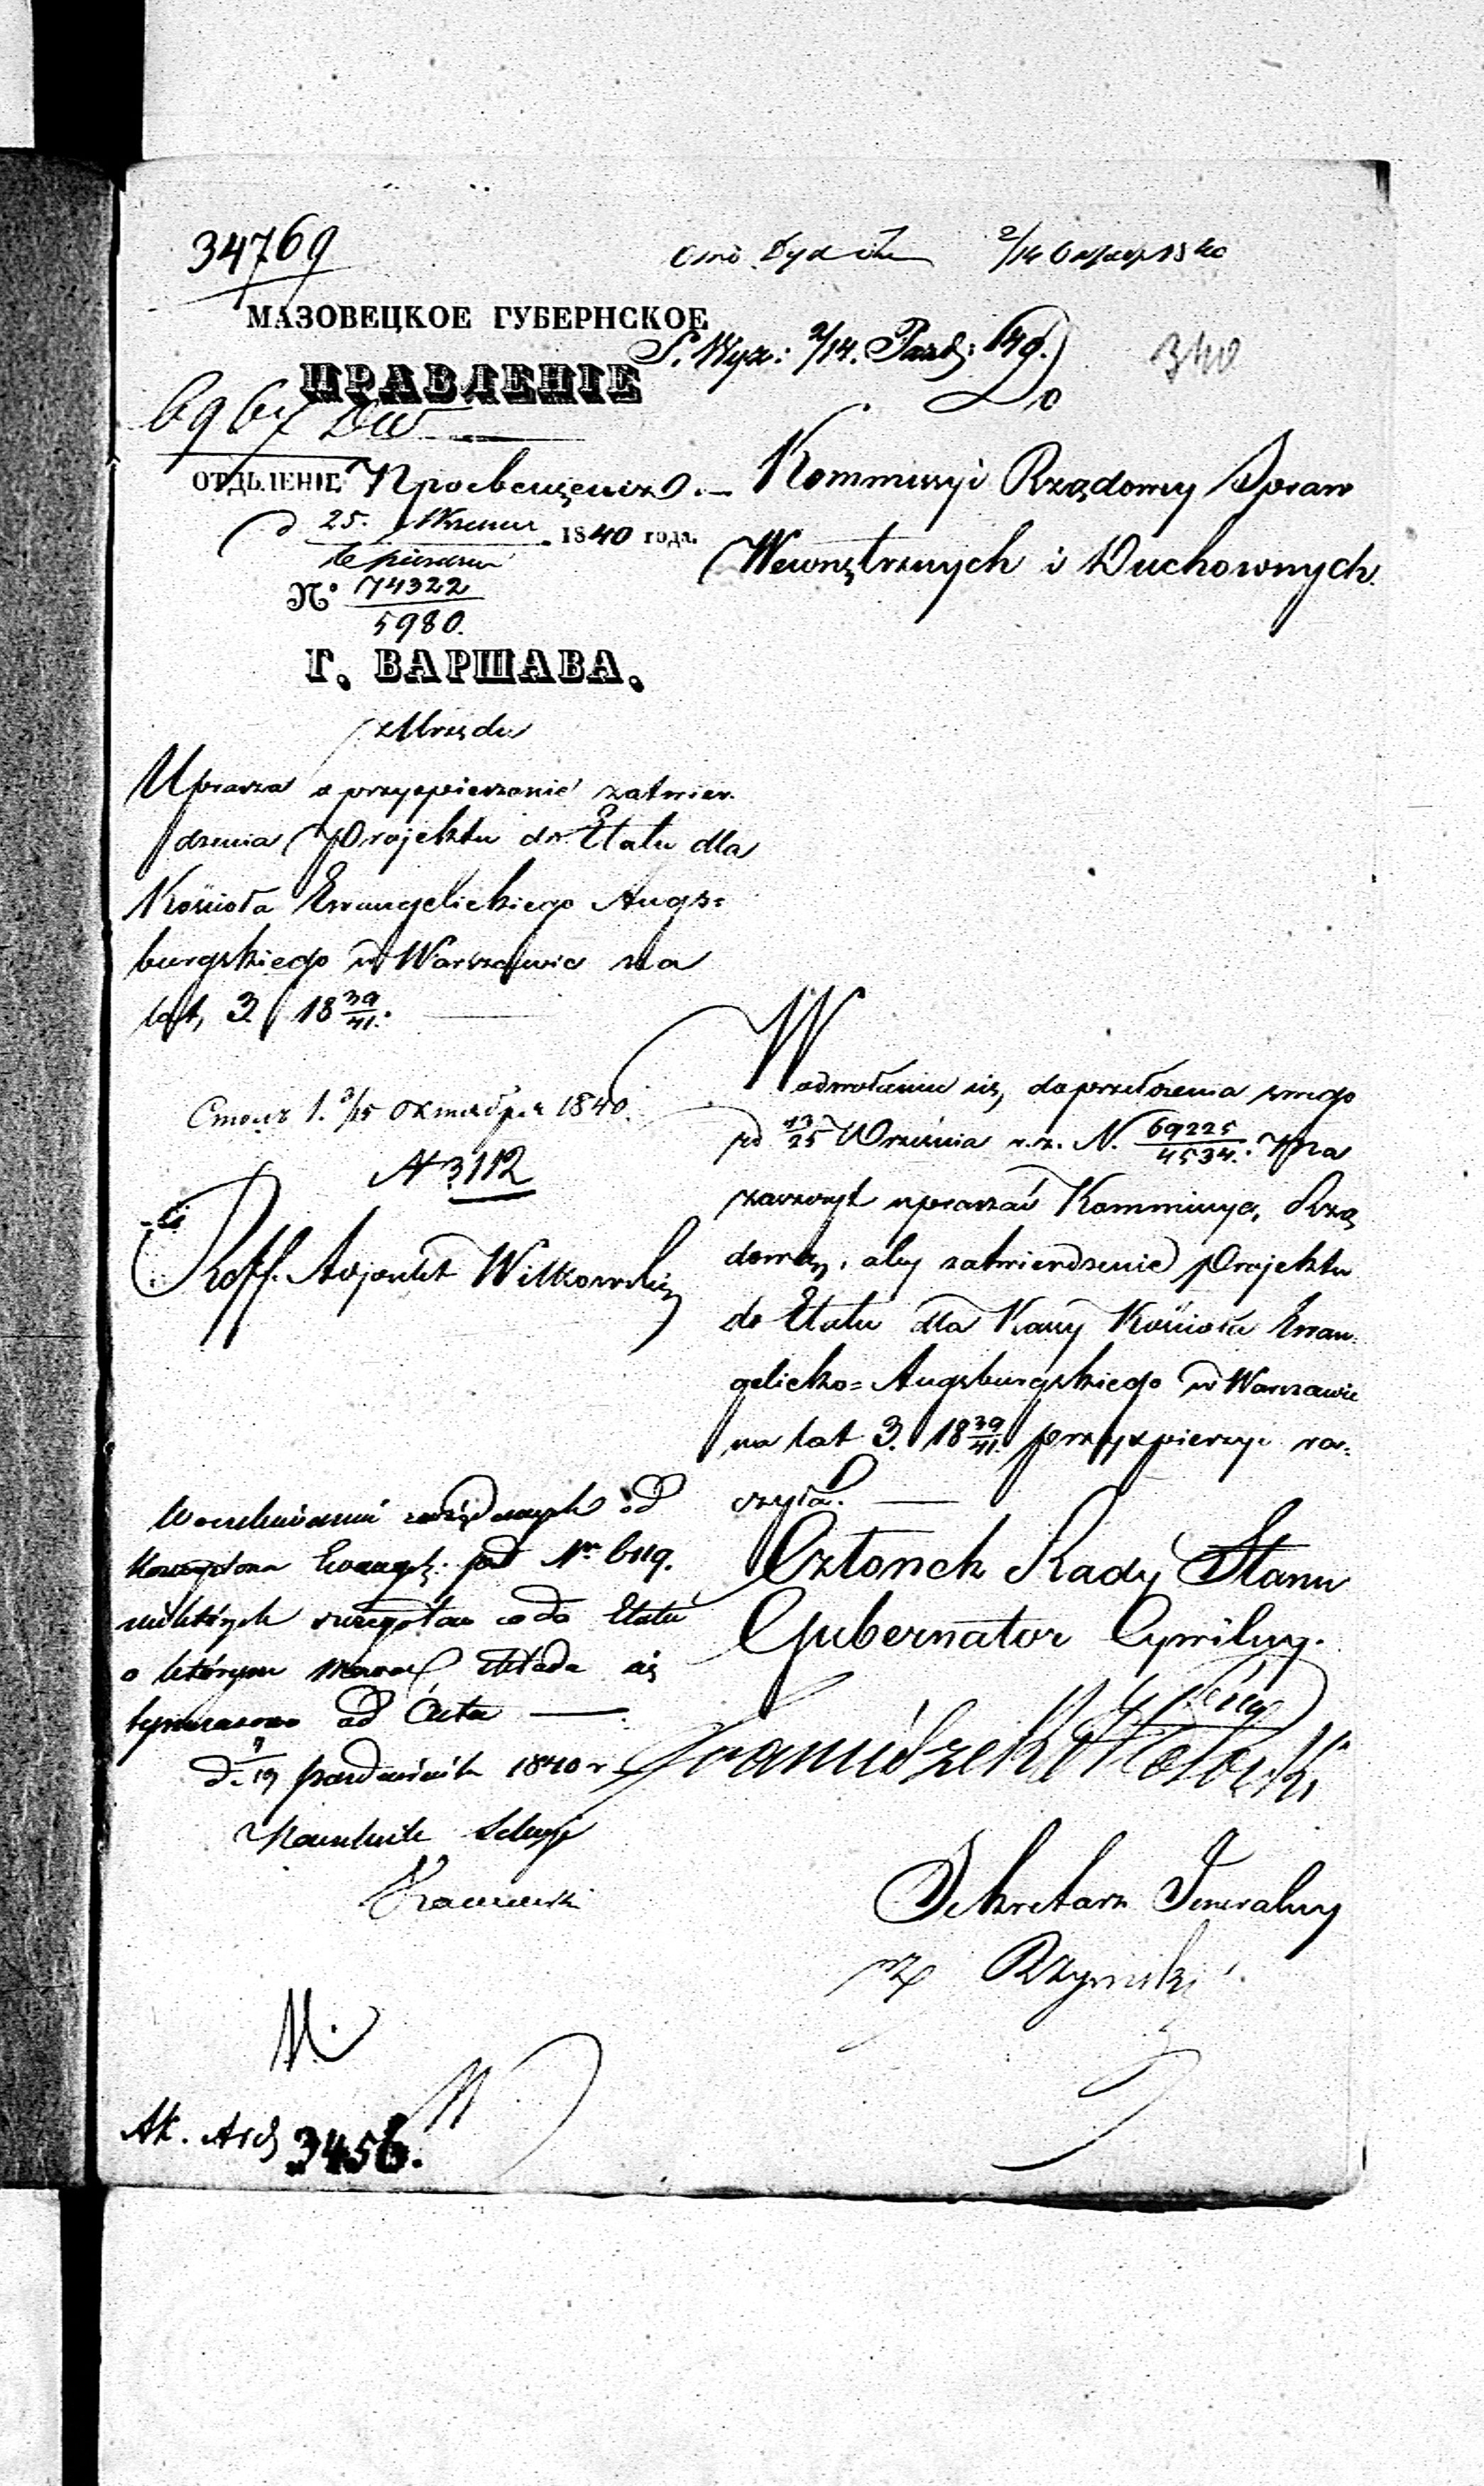 34769
2/14 1840
МАЗОВЕЦКОЕ ГУБЕРНСКОЕ
ПРАВЛЕНІЕ
S. Wyz: 2/14. Pazd:
340
6967 DW
Do
ОТДѢЛЕНІЕ Просвещенія.
Kommissyi Rządowey Spraw
Wewnętrznych i Duchownych.
d 25. Wrzesnia 1840 года.
№ 74322
5980.
Г. ВАРШАВА.
z Urzędu
Uprasza o przyspieszenie zatwier-
dzenia Projektu do Etatu dla
Kościoła Ewangelickiego Augs=
burgskiego w Warszawie na
lat 3. 18 39/41.
Столъ 1. 3/15 Октября 1840.
N 3112
Reff. Adjunkt Witkowski
W odwołaniu się do przełożenia swego
od 13/25 Września r.z. N. 69225/4534. ma
zaszczyt upraszać Kommissyą Rzą
dową, aby zatwierdzenie Projektu
do Etatu dla Kassy Kościoła Ewan-
gelicko=Augsburgskiego w Warszawie
na lat 3. 18 39/41. przyspieszyć ra-
czyła.
Członek Rady Stanu
Gubernator Cywilny.
W oczekiwaniu zażądanych od
Konsystorza Ewangel: pod Nr
niektórych szczegółów co do Etatu
o którym mowa składa się
tymczasowo ad Acta
d. 19 pazdziernika 1840 r
Naczelnik Sekcyi
Sekretarz Jeneralny
M.
Ak. Arch 3456.